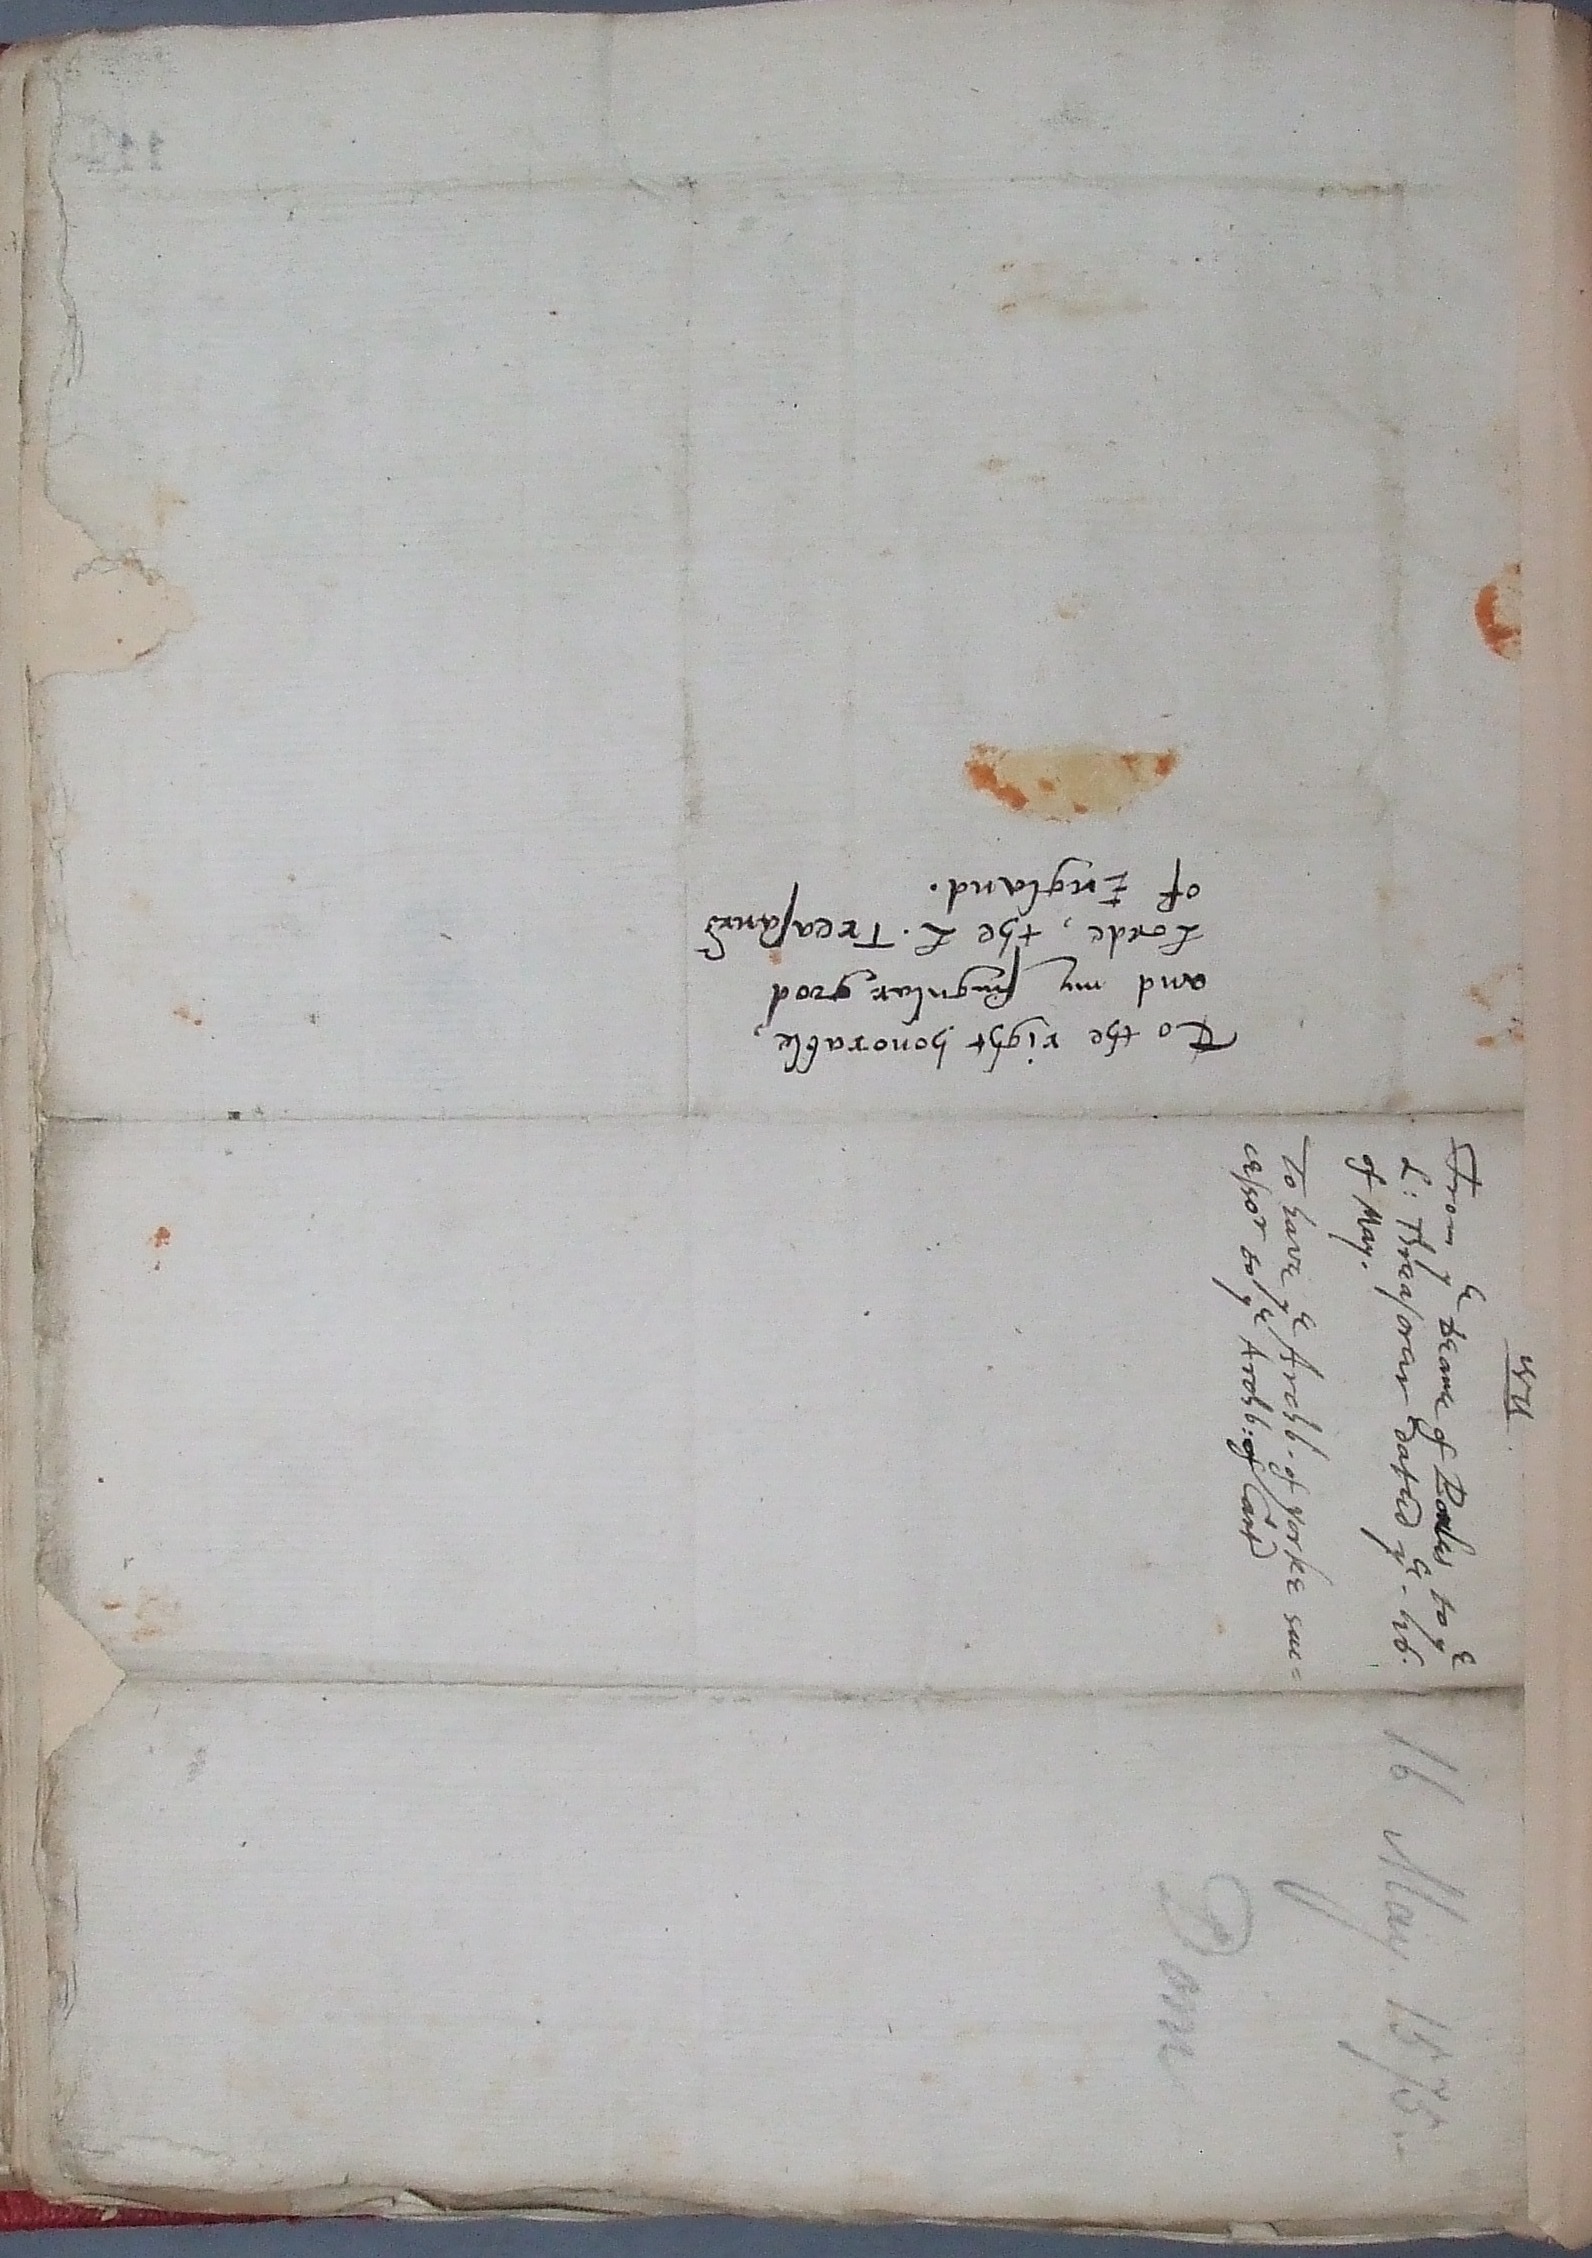 To the right honorable,
and my singular good
Lorde, the L. Treasaurer
of England.
1575
From yᵉ Deane of Powles to yᵉ
L: Threasorer dated yᵉ . 16.
of May.
To have yᵉ Archb. of Yorke suc=
cessor to yᵉ Archb: of Cant
16 May. 1575
Dom
114